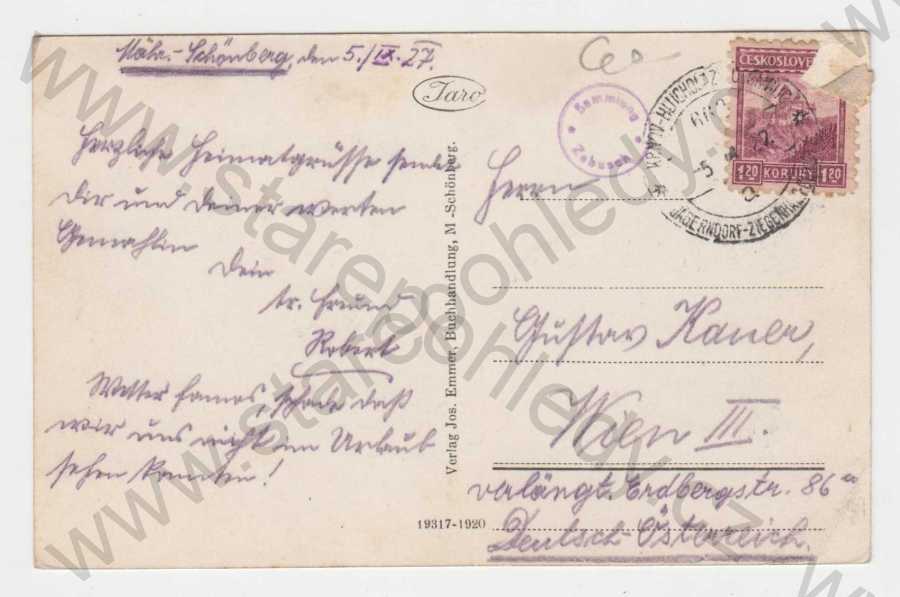 Mähr.-Schönberg, den 5./IX. 27.
Taro
Sammlung
Zebusch
ČESKOSLOVE
1.20 KORUNY 1.20
JÄGERNDORF-ZIEGENHALS
Herzliche Heimatgrüsse sendet
dir und deiner werten
Gemahlin
Dein
tr. Freund
Robert
Wetter famos, schade daß
wir uns nicht im Urlaub
sehen konnten!
Verlag Jos. Emmer, Buchhandlung, M -Schönberg.
19317-1920
Herrn
Gustav Kauer,
Wien III.
verlängt. Erdbergstr. 86
Deutsch-Österreich.
www.starepohledy.cz